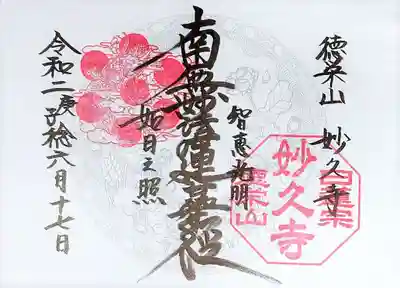 徳栄山 妙久寺
智恵光明
南無妙法蓮華経
如日之照
令和二庚子稔六月十七日
妙久寺